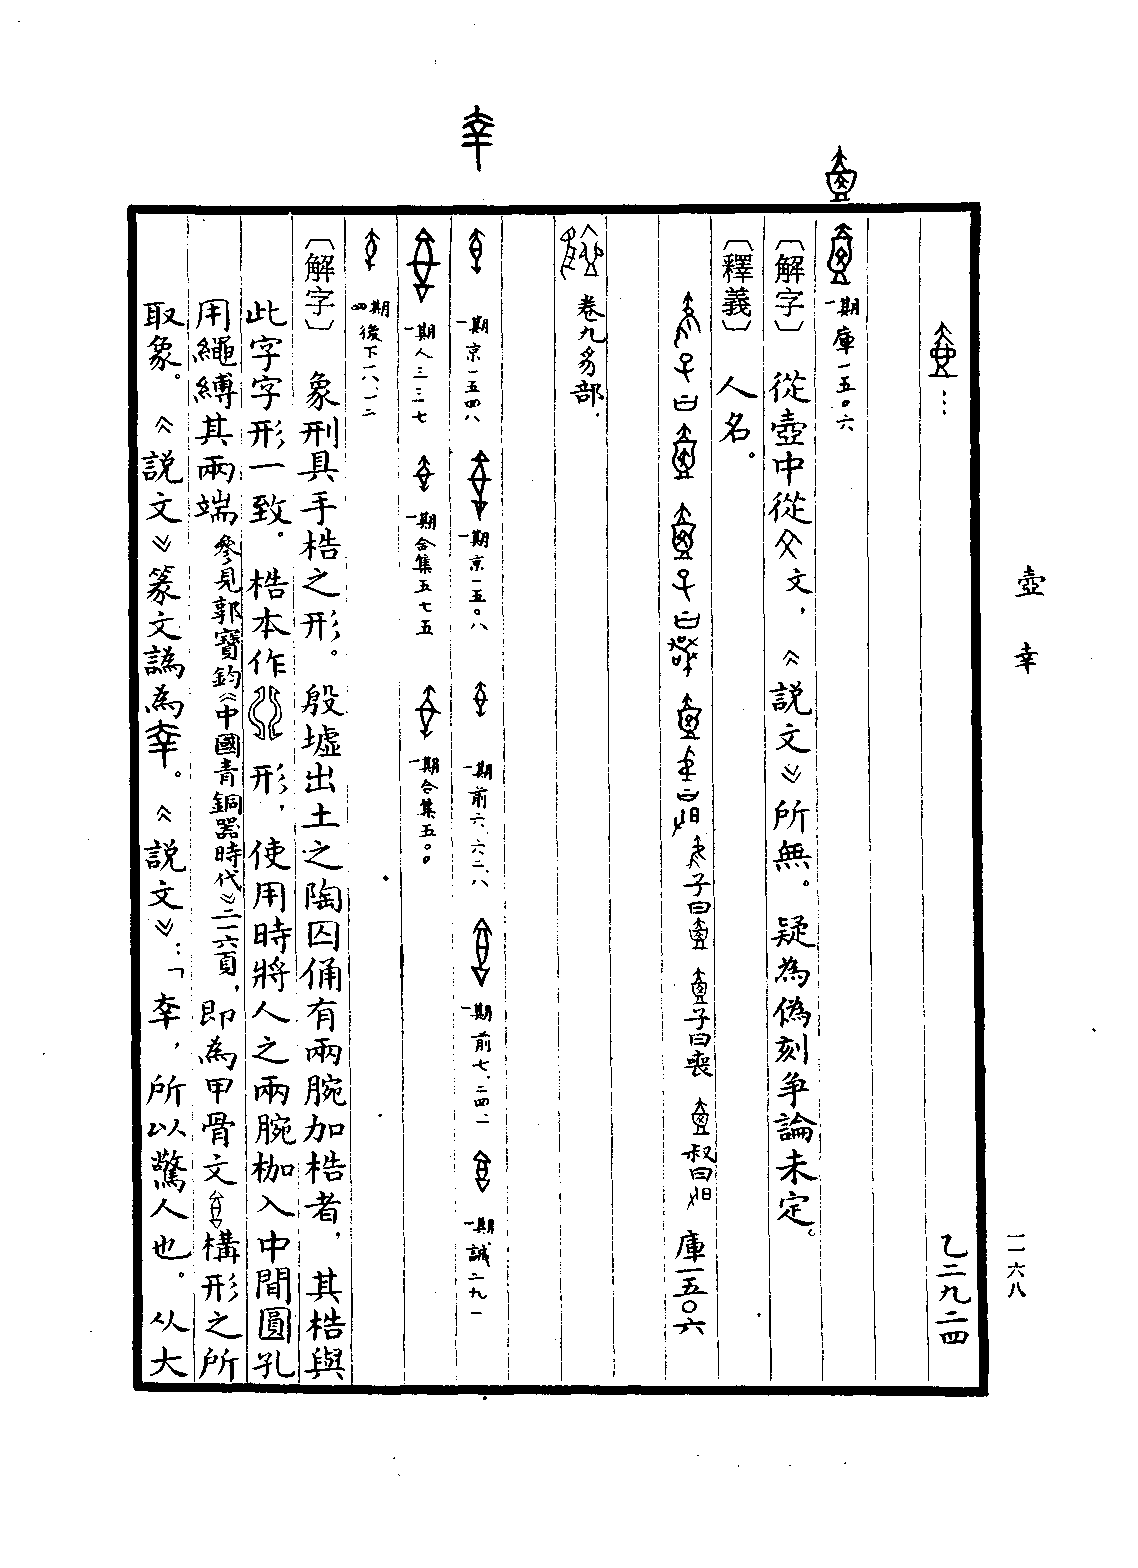 壺 㚔
一一六八
… 乙二九二四
一期 庫一五〇六
〔解字〕 從壺中從文，《說文》所無。疑為偽刻爭論未定。
〔釋義〕 人名。
子曰 子曰喪 叔曰 庫一五〇六
卷九 部．
一期 京一五四八 一期 京一五〇八 一期 前六．六二．八 一期 前七．二四．一 一期 誠二九一
一期 人三三一七 一期 合集五七五 一期 合集五〇〇
四期 後下一八．一二
〔解字〕 象刑具手梏之形。殷墟出土之陶囚俑有兩腕加梏者，其梏與
此字字形一致。梏本作 形，使用時將人之兩腕枷入中間圓孔
用繩縛其兩端參見郭寶鈞《中國青銅器時代》二一六頁，即為甲骨文 構形之所
取象。《說文》篆文譌為㚔。《說文》：「㚔，所以驚人也。从大